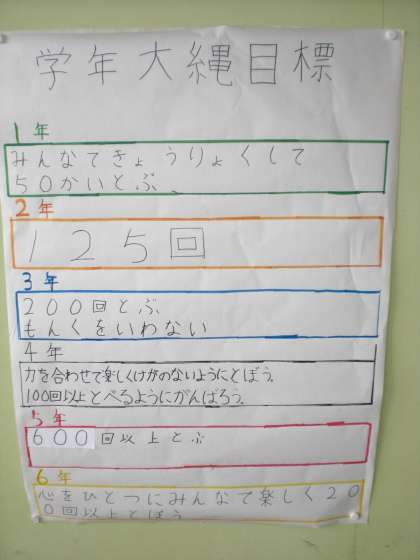 学年大縄目標
1年
みんなてきょうりょくして
50かいとぶ、
2年
125回
3年
200回とぶ
もんくをいわない
4年
力を合わせて楽しくけがのないようにとぼう。
100回以上とべるようにがんばろう。
5年
600回以上とぶ
6年
心をひとつにみんなで楽しく20
0回以上とぼう